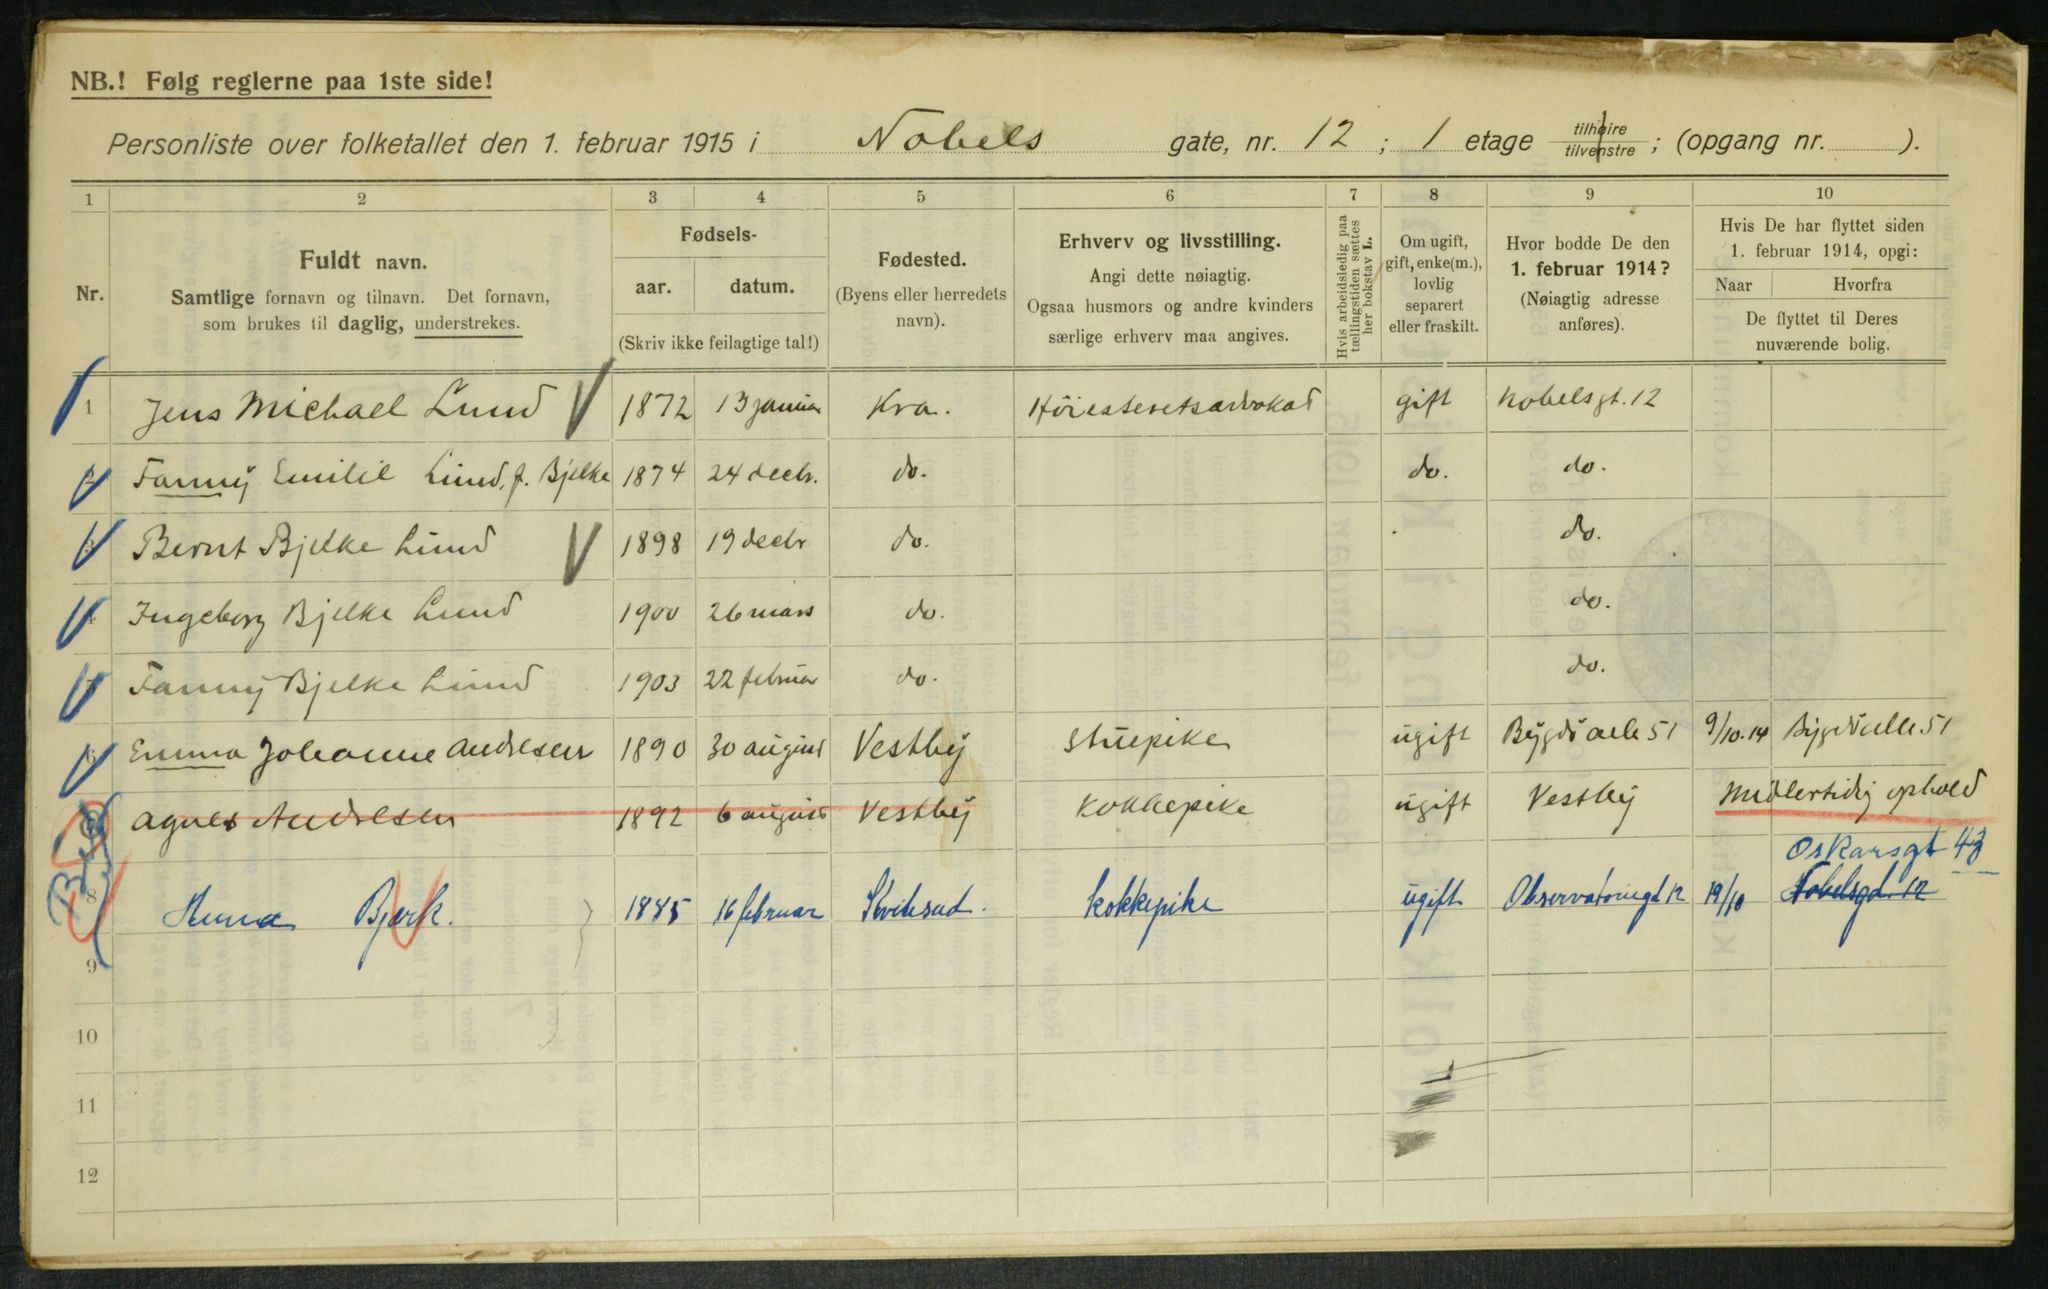 NB.! Følg reglerne paa 1ste side!
Personliste over folketallet den 1. februar 1915 i Nobels gate, nr. 12 ; 1 etage tilhøire tilvenstre ; (opgang nr. ).
1 2 3 4 5 6 7 8 9 10
Nr.
Fuldt navn.
Samtlige fornavn og tilnavn. Det fornavn,
som brukes til daglig, understrekes.
Fødsels-
aar. datum.
(Skriv ikke feilagtige tal!)
Fødested.
(Byens eller herredets
navn).
Erhverv og livsstilling.
Angi dette nøiagtig.
Ogsaa husmors og andre kvinders
særlige erhverv maa angives.
Hvis arbeidsledig paa
tællingstiden sættes
her bokstav L.
Om ugift,
gift, enke(m.),
lovlig
separert
eller fraskilt.
Hvor bodde De den
1. februar 1914?
(Nøiagtig adresse
anføres).
Hvis De har flyttet siden
1. februar 1914, opgi:
Naar Hvorfra
De flyttet til Deres
nuværende bolig.
1 Jens Michael Lund 1872 13 januar Kra. Høiesteretsadvokat gift Nobelsgt. 12
2 Fanny Emilie Lund, f. Bjelke 1874 24 decbr. do. do. do.
3 Bernt Bjelke Lund 1898 19 decbr do. do.
4 Ingeborg Bjelke Lund 1900 26 mars do. do.
Fanny Bjelke Lund 1903 22 februar do. do.
6 Emma Johanne Andresen 1890 30 august Vestby Stuepike ugift Bygdø alle 51 9/10.14 Bygdø alle 51
Agnes Andresen 1892 6 august Vestby Kokkepike ugift Vestby Midlertidig ophold
Oskarsgt 43
8 Bjørk. 1885 16 februar Kviteseid. kokkepike ugift Observatoriegt 12 19/10 Nobelsgt. 12
9
10
11
12